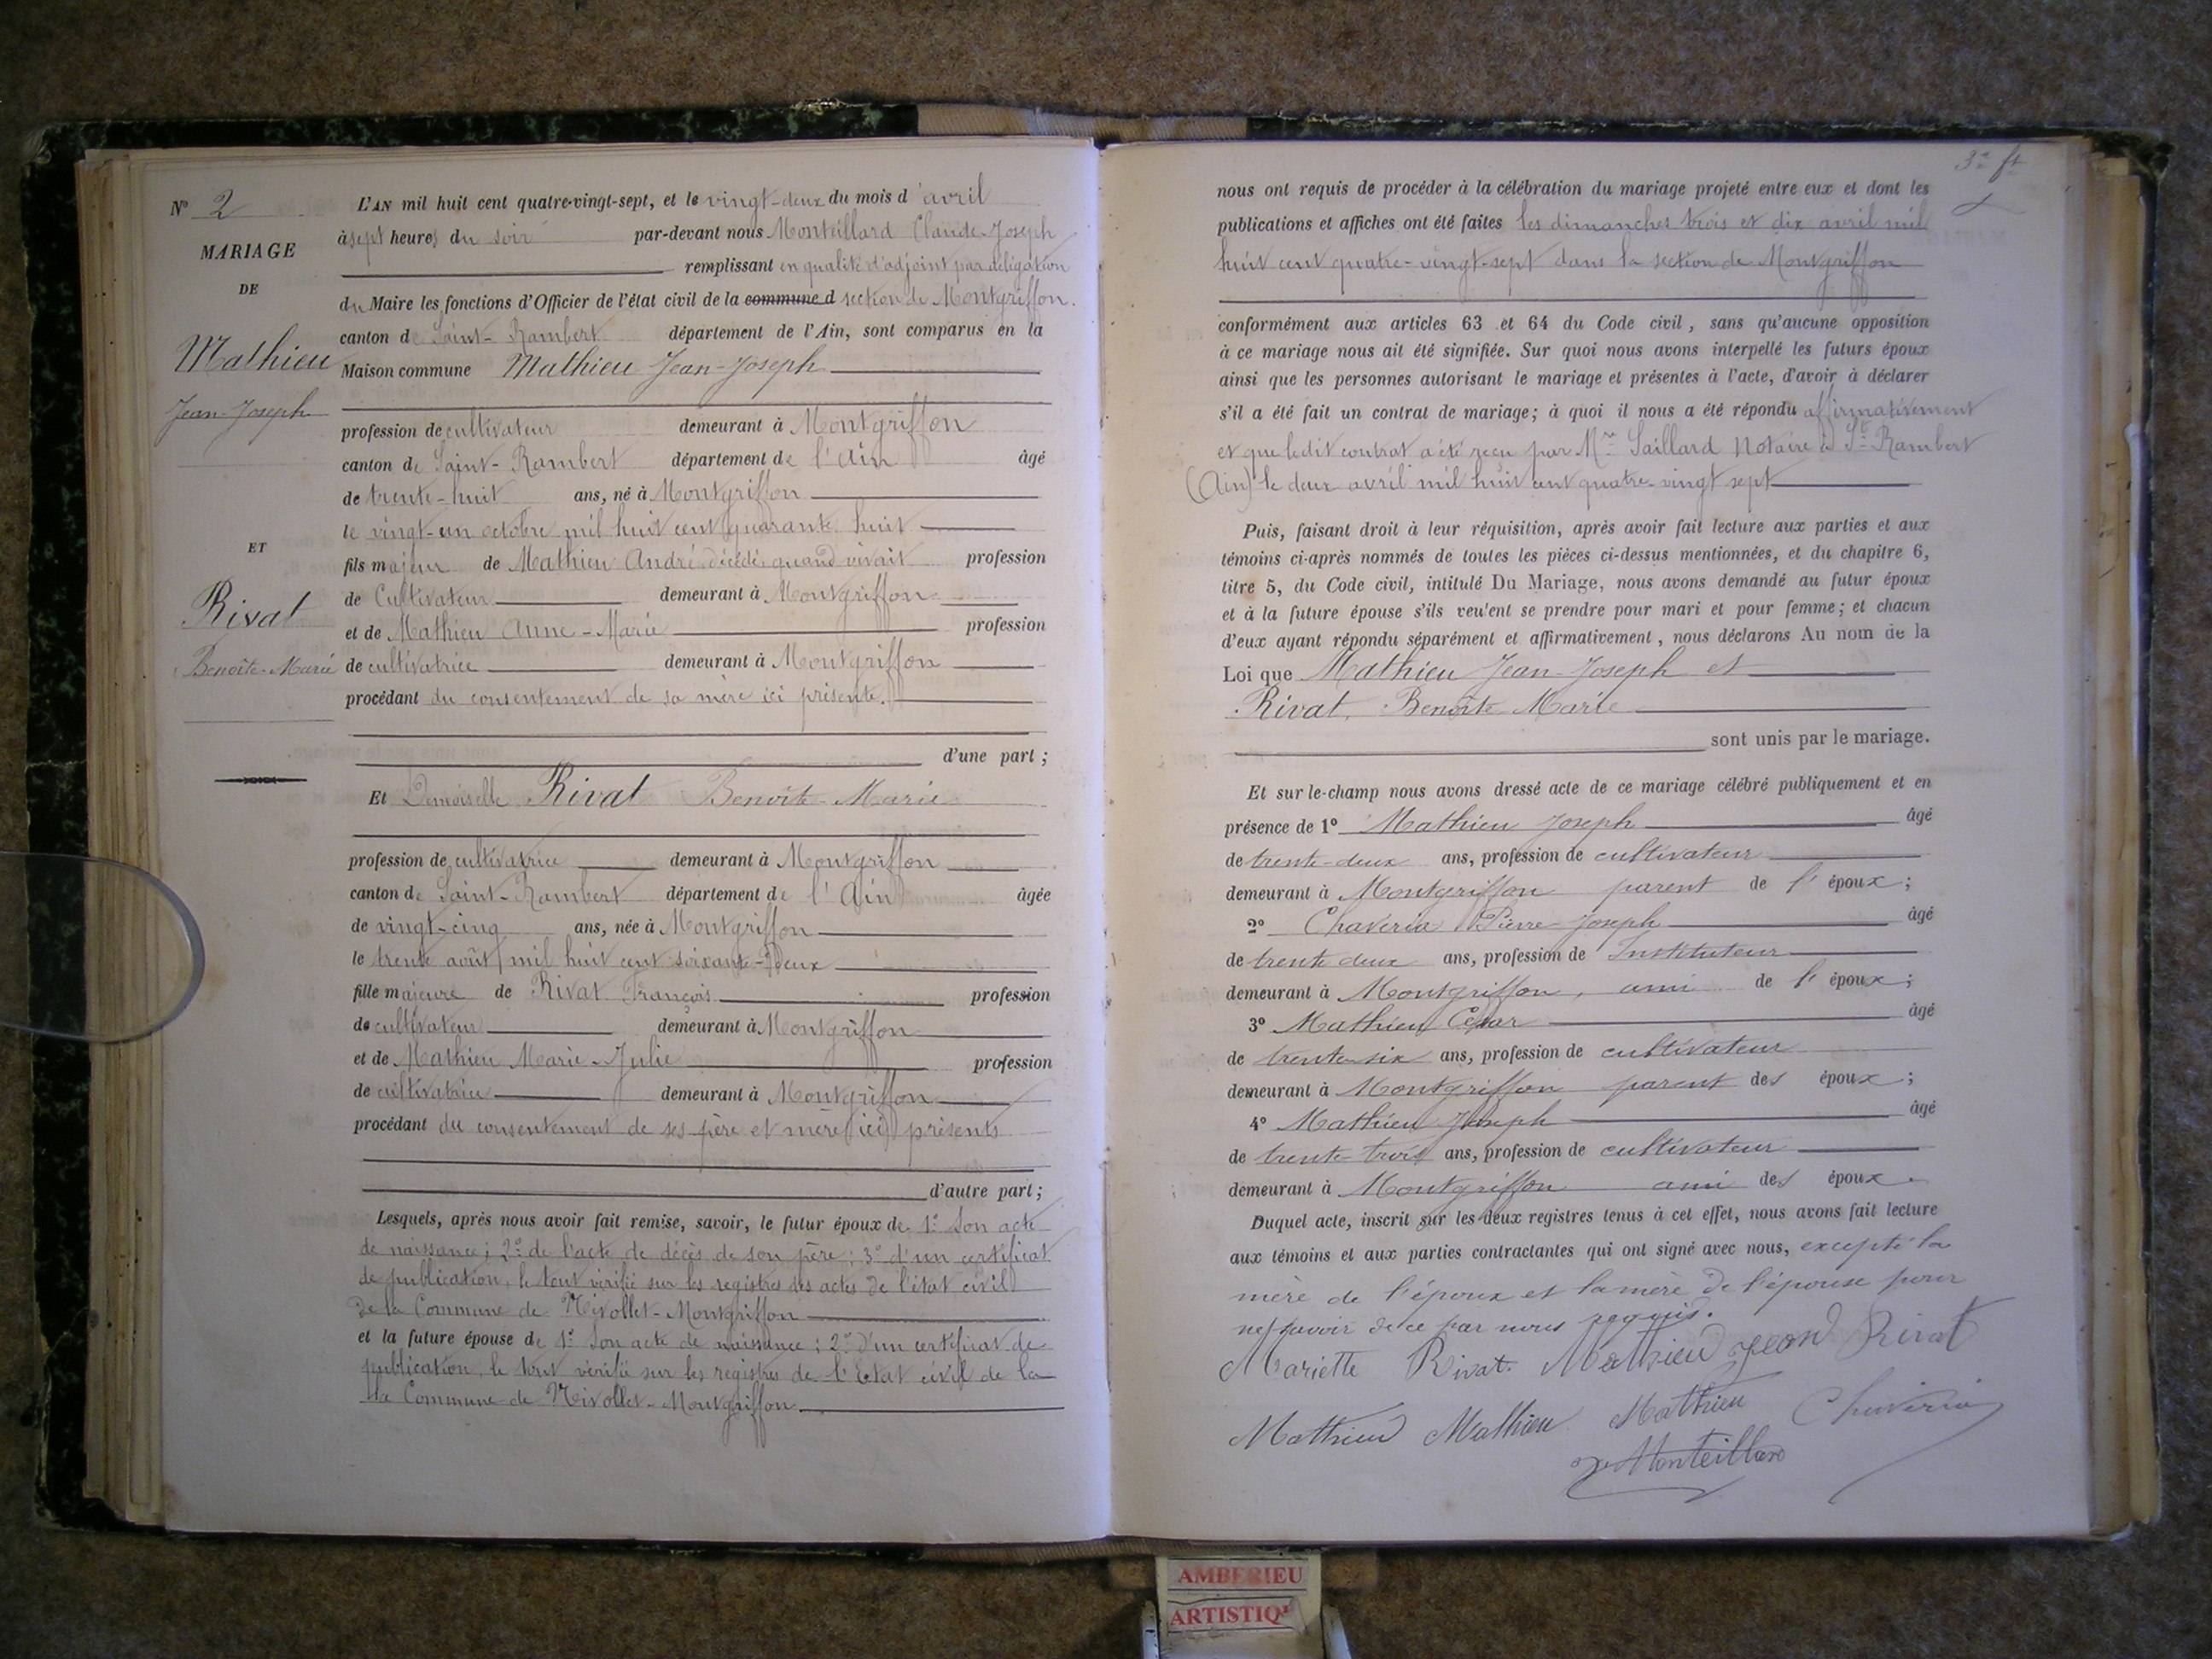 N° 2
MARIAGE
DE
Mathieu
Jean-Joseph
ET
Rivat
Benoîte-Marie
L'AN mil huit cent quatre-vingt-sept, et le vingt-deux du mois d'avril
à sept heures du soir par-devant nous Monteillard Claude-Joseph
remplissant en qualité d'adjoint par délégation
du Maire les fonctions d'Officier de l'état civil de la commune d section de Montgriffon.
canton de Saint-Rambert département de l'Ain, sont comparus en la
Maison commune Mathieu Jean-Joseph
profession de cultivateur demeurant à Montgriffon
canton de Saint-Rambert département de l'Ain âgé
de trente-huit ans, né à Montgriffon
le vingt-un octobre mil huit cent quarante huit
fils majeur de Mathieu André décédé quand vivait profession
de Cultivateur demeurant à Montgriffon
et de Mathieu Anne-Marie profession
de cultivatrice demeurant à Montgriffon
procédant du consentement de sa mère ici présente.
d'une part ;
Et Demoiselle Rivat Benoîte-Marie
profession de cultivatrice demeurant à Montgriffon
canton de Saint-Rambert département de l'Ain âgée
de vingt-cinq ans, née à Montgriffon
le trente août mil huit cent soixante-deux
fille majeure de Rivat François profession
de cultivateur demeurant à Montgriffon
et de Mathieu Marie-Julie profession
de cultivatrice demeurant à Montgriffon
procédant du consentement de ses père et mère ici présents
d'autre part ;
Lesquels, après nous avoir fait remise, savoir, le futur époux de 1° Son acte
de naissance ; 2° de l'acte de décès de son père ; 3° d'un certificat
de publication, le tout vérifié sur les registres des actes de l'état civil
de la Commune de Nivollet-Montgriffon
et la future épouse de 1° Son acte de naissance ; 2° d'un certificat de
publication, le tout vérifié sur les registres de l'Etat civil de la
la Commune de Nivollet-Montgriffon
nous ont requis de procéder à la célébration du mariage projeté entre eux et dont les
publications et affiches ont été faites les dimanches trois et dix avril mil
huit cent quatre-vingt-sept dans la section de Montgriffon
conformément aux articles 63 et 64 du Code civil, sans qu'aucune opposition
à ce mariage nous ait été signifiée. Sur quoi nous avons interpellé les futurs époux
ainsi que les personnes autorisant le mariage et présentes à l'acte, d'avoir à déclarer
s'il a été fait un contrat de mariage ; à quoi il nous a été répondu affirmativement
et que ledit contrat a été reçu par Me Saillard Notaire à St-Rambert
(Ain) le deux avril mil huit cent quatre-vingt sept
Puis, faisant droit à leur réquisition, après avoir fait lecture aux parties et aux
témoins ci-après nommés de toutes les pièces ci-dessus mentionnées, et du chapitre 6,
titre 5, du Code civil, intitulé Du Mariage, nous avons demandé au futur époux
et à la future épouse s'ils veu'ent se prendre pour mari et pour femme ; et chacun
d'eux ayant répondu séparément et affirmativement, nous déclarons Au nom de la
Loi que Mathieu Jean-Joseph et
Rivat, Benoîte Marie
sont unis par le mariage.
Et sur-le-champ nous avons dressé acte de ce mariage célébré publiquement et en
présence de 1° Mathieu Joseph âgé
de trente-deux ans, profession de cultivateur
demeurant à Montgriffon parent de l'époux ;
2° Chaveria Pierre-Joseph âgé
de trente deux ans, profession de Instituteur
demeurant à Montgriffon, ami de l'époux ;
3° Mathieu César âgé
de trente-six ans, profession de cultivateur
demeurant à Montgriffon parent des époux ;
4° Mathieu Joseph âgé
de trente-trois ans, profession de cultivateur
demeurant à Montgriffon ami des époux.
Duquel acte, inscrit sur les deux registres tenus à cet effet, nous avons fait lecture
aux témoins et aux parties contractantes qui ont signé avec nous, excepté la
mère de l'époux et la mère de l'épouse pour
ne savoir de ce par nous requis.
Mariette Rivat. Mathieu Jean Rivat
Mathieu Mathieu Mathieu Chaveria
Monteillard
AMBERIEU
ARTISTIQ